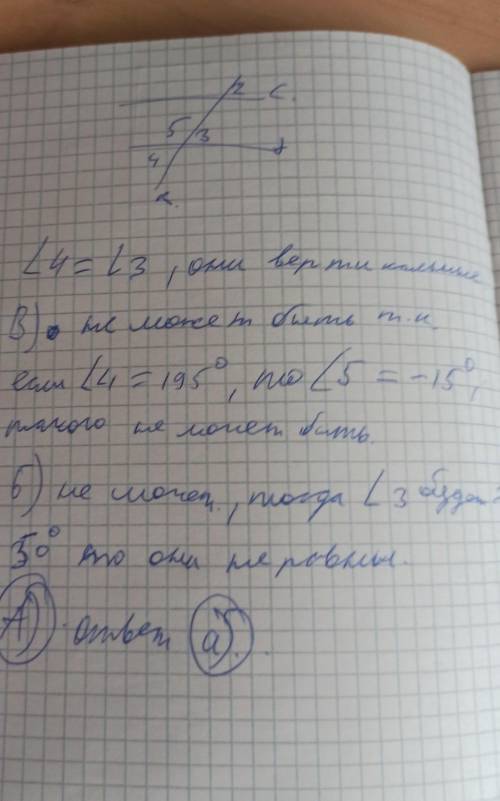 2 c.
5 3
4
∠4 = ∠3, они вертикальные
В) не может быть т.к.
если ∠4 = 195°, то ∠5 = -15°,
такого не может быть.
б) не может, тогда ∠3 будет
50° то они не равны.
А) ответ а).